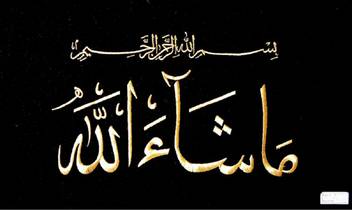 بسم الله الرحمن الرحيم
ما شاء الله